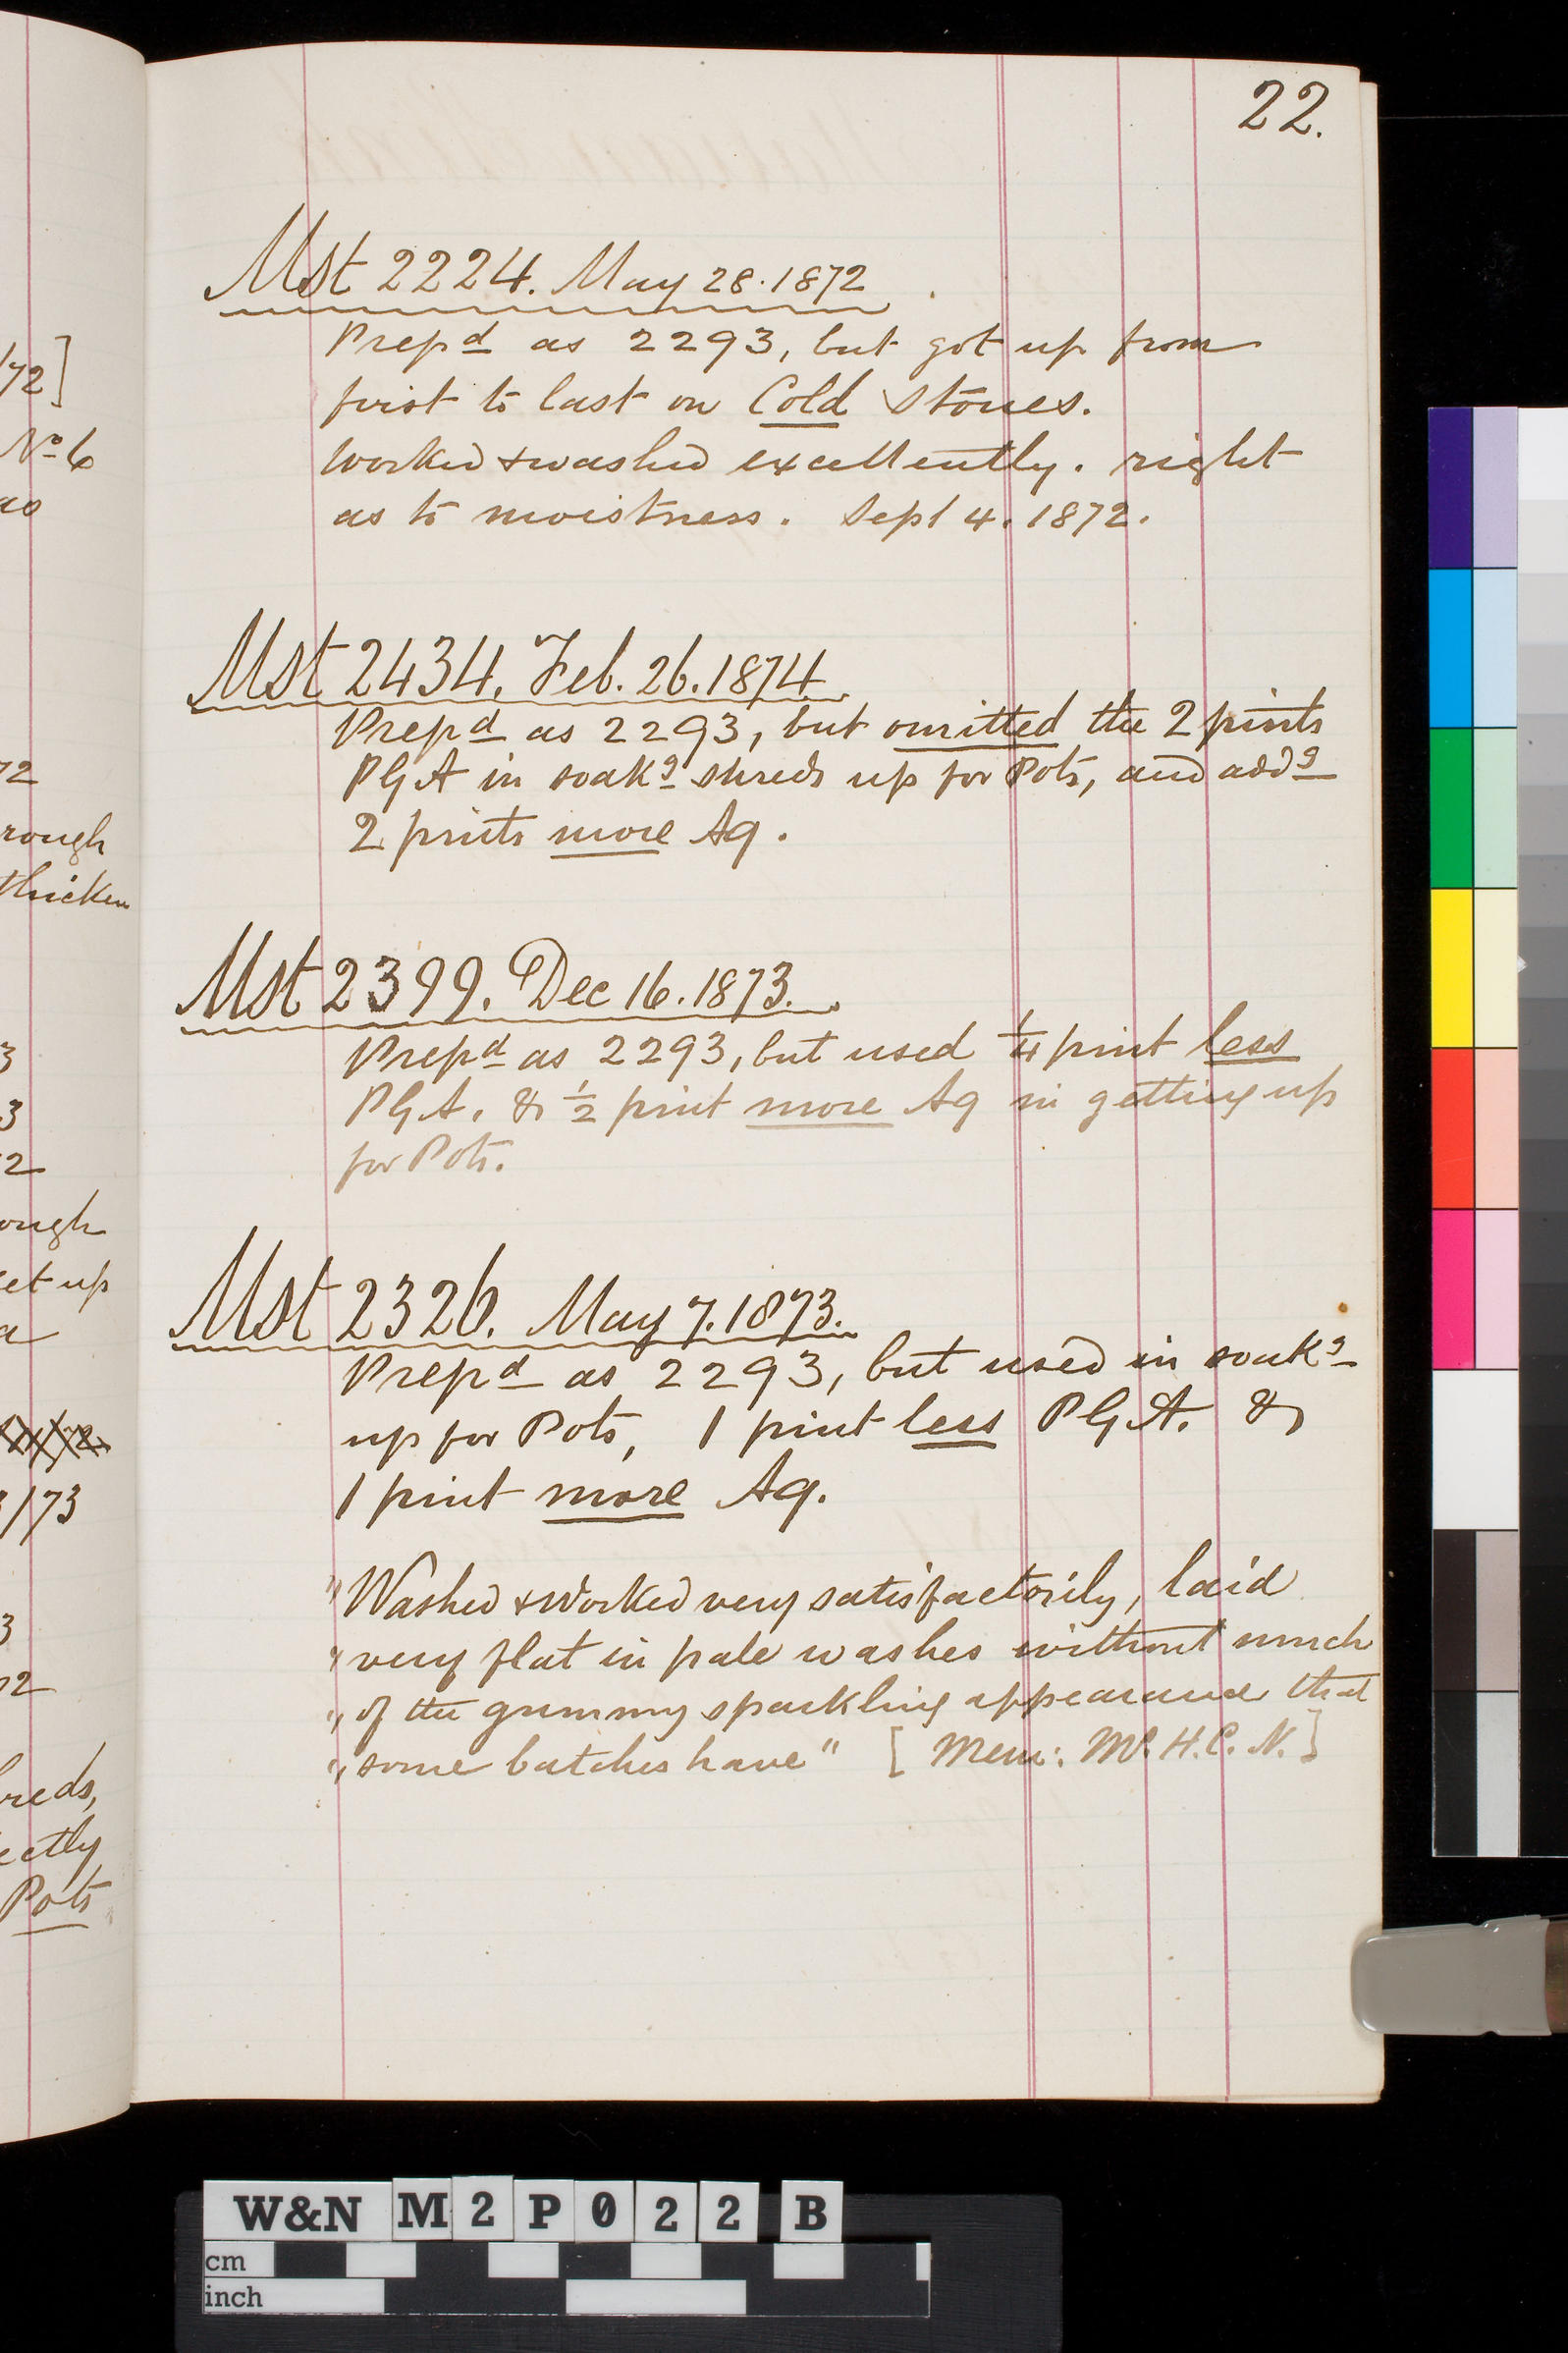 22.
Mst 2224. May 28. 1872
Prepd as 2293, but got up from
first to last on Cold stones.
Worked & washed excellently. right
as to moistness. Sept 4. 1872.
Mst 2434. Feb. 26. 1874
Prepd as 2293, but omitted the 2 pints
PGA in soakg shreds up for Pots, and addg
2 pints more Aq.
Mst 2399. Dec 16. 1873.
Prepd as 2293, but used 1/4 pint less
PGA. & 1/2 pint more Aq in getting up
for Pots.
Mst 2326. May 7. 1873.
Prepd as 2293, but used in soakg
up for Pots, 1 pint less PGA. &
1 pint more Aq.
"Washed & Worked very satisfactorily, laid
"very flat in pale washes without much
"of the gummy sparkling appearance that
"some batches have" [Mem: Mr. H. C. N.]
/72]
No 6
as
72
rough
thicken
3
3
2
ough
et up
a
3/73
3
72
reds,
ectly
Pots
W&N M2P022 B
cm
inch